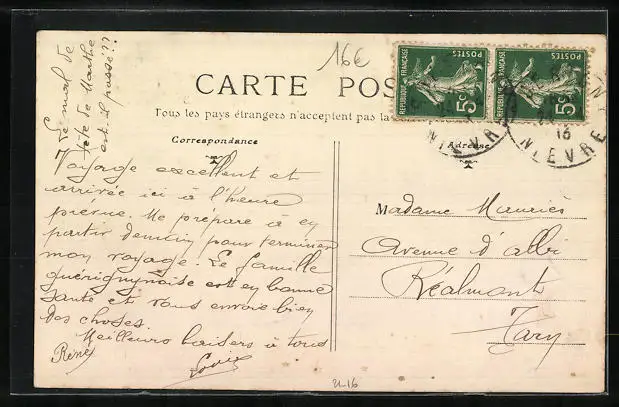 16€
CARTE POS
Tous les pays étrangers n'acceptent pas la
Correspondance
Adresse
Le mal de
tête de Marthe
est-il passé??
Voyage excellent et
arrivée ici à l'heure
prévue. Me prépare à en
partir demain pour terminer
mon voyage. La famille
guérignynaise est en bonne
santé et vous envoie bien
des choses.
Meilleurs baisers à tous
René
Madame Mauriès
Avenue d'Albi
Réalmont
Tarn
REPUBLIQUE FRANÇAISE
POSTES
5c
REPUBLIQUE FRANÇAISE
POSTES
5c
NIEVRE
16
NIEVRE
11-16